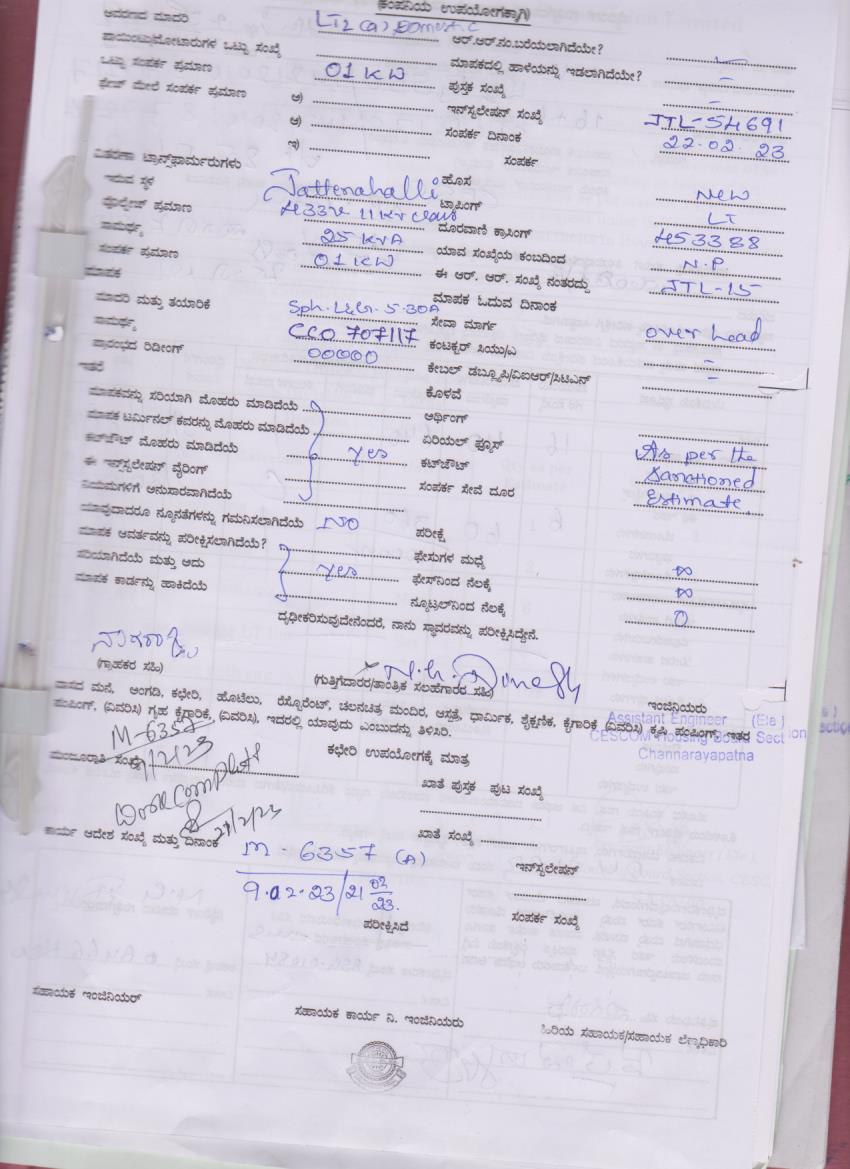 (ಕಂಪನಿಯ ಉಪಯೋಗಕ್ಕಾಗಿ)
ಆವರಣದ ಮಾದರಿ LT2 (a) Domestic ಆರ್.ಆರ್.ನಂ.ಬರೆಯಲಾಗಿದೆಯೇ?
ಪಾಯಿಂಟು/ಮೋಟಾರುಗಳ ಒಟ್ಟು ಸಂಖ್ಯೆ ಮಾಪಕದಲ್ಲಿ ಹಾಳೆಯನ್ನು ಇಡಲಾಗಿದೆಯೇ? –
ಒಟ್ಟು ಸಂಪರ್ಕ ಪ್ರಮಾಣ 01 KW ಪುಸ್ತಕ ಸಂಖ್ಯೆ –
ಫೇಸ್ ಮೇಲೆ ಸಂಪರ್ಕ ಪ್ರಮಾಣ ಅ) ಇನ್‌ಸ್ಟಲೇಷನ್ ಸಂಖ್ಯೆ JTL-54691
ಆ) ಸಂಪರ್ಕ ದಿನಾಂಕ 22.02.23
ಇ) ಸಂಪರ್ಕ
ವಿತರಣಾ ಟ್ರಾನ್ಸ್‌ಫಾರ್ಮರುಗಳು ಹೊಸ New
ಇರುವ ಸ್ಥಳ Jattenahalli ಟ್ಯಾಪಿಂಗ್ LT
ವೋಲ್ಟೇಜ್ ಪ್ರಮಾಣ 433V 11KV class ದೂರವಾಣಿ ಕ್ರಾಸಿಂಗ್ 453388
ಸಾಮರ್ಥ್ಯ 25 KVA ಯಾವ ಸಂಖ್ಯೆಯ ಕಂಬದಿಂದ N.P.
ಸಂಪರ್ಕ ಪ್ರಮಾಣ 01 KW ಈ ಆರ್. ಆರ್. ಸಂಖ್ಯೆ ನಂತರದ್ದು JTL-15
ಮಾಪಕ ಮಾಪಕ ಓದುವ ದಿನಾಂಕ
ಮಾದರಿ ಮತ್ತು ತಯಾರಿಕೆ Sph. L&G. 5-30A ಸೇವಾ ಮಾರ್ಗ over head
ಸಾಮರ್ಥ್ಯ CCO 707117 ಕಂಟಕ್ಟರ್ ಸಿಯು/ಎ –
ಪ್ರಾರಂಭದ ರಿಡೀಂಗ್ 00000 ಕೇಬಲ್ ಡಬ್ಲ್ಯೂಪಿ/ವಿಐಆರ್/ಸಿಟಿಎಸ್ –
ಇತರೆ ಕೊಳವೆ
ಮಾಪಕವನ್ನು ಸರಿಯಾಗಿ ಮೊಹರು ಮಾಡಿದೆಯೆ ಅರ್ಥಿಂಗ್
ಮಾಪಕ ಟರ್ಮಿನಲ್ ಕವರನ್ನು ಮೊಹರು ಮಾಡಿದೆಯೆ ಏರಿಯಲ್ ಫ್ಯೂಸ್ As per the
ಕಟ್‌ಔಟ್ ಮೊಹರು ಮಾಡಿದೆಯೆ yes ಕಟ್‌ಔಟ್ Sanctioned
ಈ ಇನ್‌ಸ್ಟಲೇಷನ್ ವೈರಿಂಗ್ ಸಂಪರ್ಕ ಸೇವೆ ದೂರ Estimate.
ನಿಯಮಗಳಿಗೆ ಅನುಸಾರವಾಗಿದೆಯೆ
ಯಾವುದಾದರೂ ನ್ಯೂನತೆಗಳನ್ನು ಗಮನಿಸಲಾಗಿದೆಯೆ NO ಪರೀಕ್ಷೆ
ಮಾಪಕ ಆವರ್ತವನ್ನು ಪರೀಕ್ಷಿಸಲಾಗಿದೆಯೆ? ಫೇಸುಗಳ ಮಧ್ಯೆ ∞
ಸರಿಯಾಗಿದೆಯೆ ಮತ್ತು ಅದು yes ಫೇಸ್‌ನಿಂದ ನೆಲಕ್ಕೆ ∞
ಮಾಪಕ ಕಾರ್ಡನ್ನು ಹಾಕಿದೆಯೆ ನ್ಯೂಟ್ರಲ್‌ನಿಂದ ನೆಲಕ್ಕೆ 0
ದೃಢೀಕರಿಸುವುದೇನೆಂದರೆ, ನಾನು ಸ್ಥಾವರವನ್ನು ಪರೀಕ್ಷಿಸಿದ್ದೇನೆ.
(ಗ್ರಾಹಕರ ಸಹಿ) (ಗುತ್ತಿಗೆದಾರರ/ತಾಂತ್ರಿಕ ಸಲಹೆಗಾರರ ಸಹಿ) ಇಂಜಿನಿಯರು
ವಾಸದ ಮನೆ, ಅಂಗಡಿ, ಕಛೇರಿ, ಹೊಟೆಲು, ರೆಸ್ಟೋರೆಂಟ್, ಚಲನಚಿತ್ರ ಮಂದಿರ, ಆಸ್ಪತ್ರೆ, ಧಾರ್ಮಿಕ, ಶೈಕ್ಷಣಿಕ, ಕೈಗಾರಿಕೆ (ವಿವರಿಸಿ) ಕೃಷಿ ಪಂಪಿಂಗ್, ಇತರ
ಪಂಪಿಂಗ್, (ವಿವರಿಸಿ) ಗೃಹ ಕೈಗಾರಿಕೆ, (ವಿವರಿಸಿ), ಇದರಲ್ಲಿ ಯಾವುದು ಎಂಬುದನ್ನು ತಿಳಿಸಿರಿ.
Assistant Engineer (Ele)
CESCOM Housing Board Section
Channarayapatna
M-6357
ಕಛೇರಿ ಉಪಯೋಗಕ್ಕೆ ಮಾತ್ರ
ಮಂಜೂರಾತಿ ಸಂಖ್ಯೆ
ಖಾತೆ ಪುಸ್ತಕ ಪುಟ ಸಂಖ್ಯೆ
Work Complete
21/2/23
ಕಾರ್ಯ ಆದೇಶ ಸಂಖ್ಯೆ ಮತ್ತು ದಿನಾಂಕ ಖಾತೆ ಸಂಖ್ಯೆ
M - 6357 (A) ಇನ್‌ಸ್ಟಲೇಷನ್
9.02.23/21 02/23.
ಸಂಪರ್ಕ ಸಂಖ್ಯೆ
ಪರೀಕ್ಷಿಸಿದೆ
ಸಹಾಯಕ ಇಂಜಿನಿಯರ್ ಸಹಾಯಕ ಕಾರ್ಯ ನಿ. ಇಂಜಿನಿಯರು ಹಿರಿಯ ಸಹಾಯಕ/ಸಹಾಯಕ ಲೆಕ್ಕಾಧಿಕಾರಿ